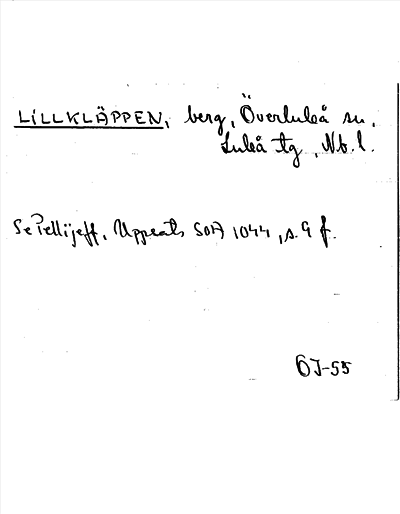 LILLKLÄPPEN, berg, Överluleå sn,
Luleå tg, Nb. l.
Se Pellijeff, Uppsats SOA 1044, s. 9 f.
ÖJ-55